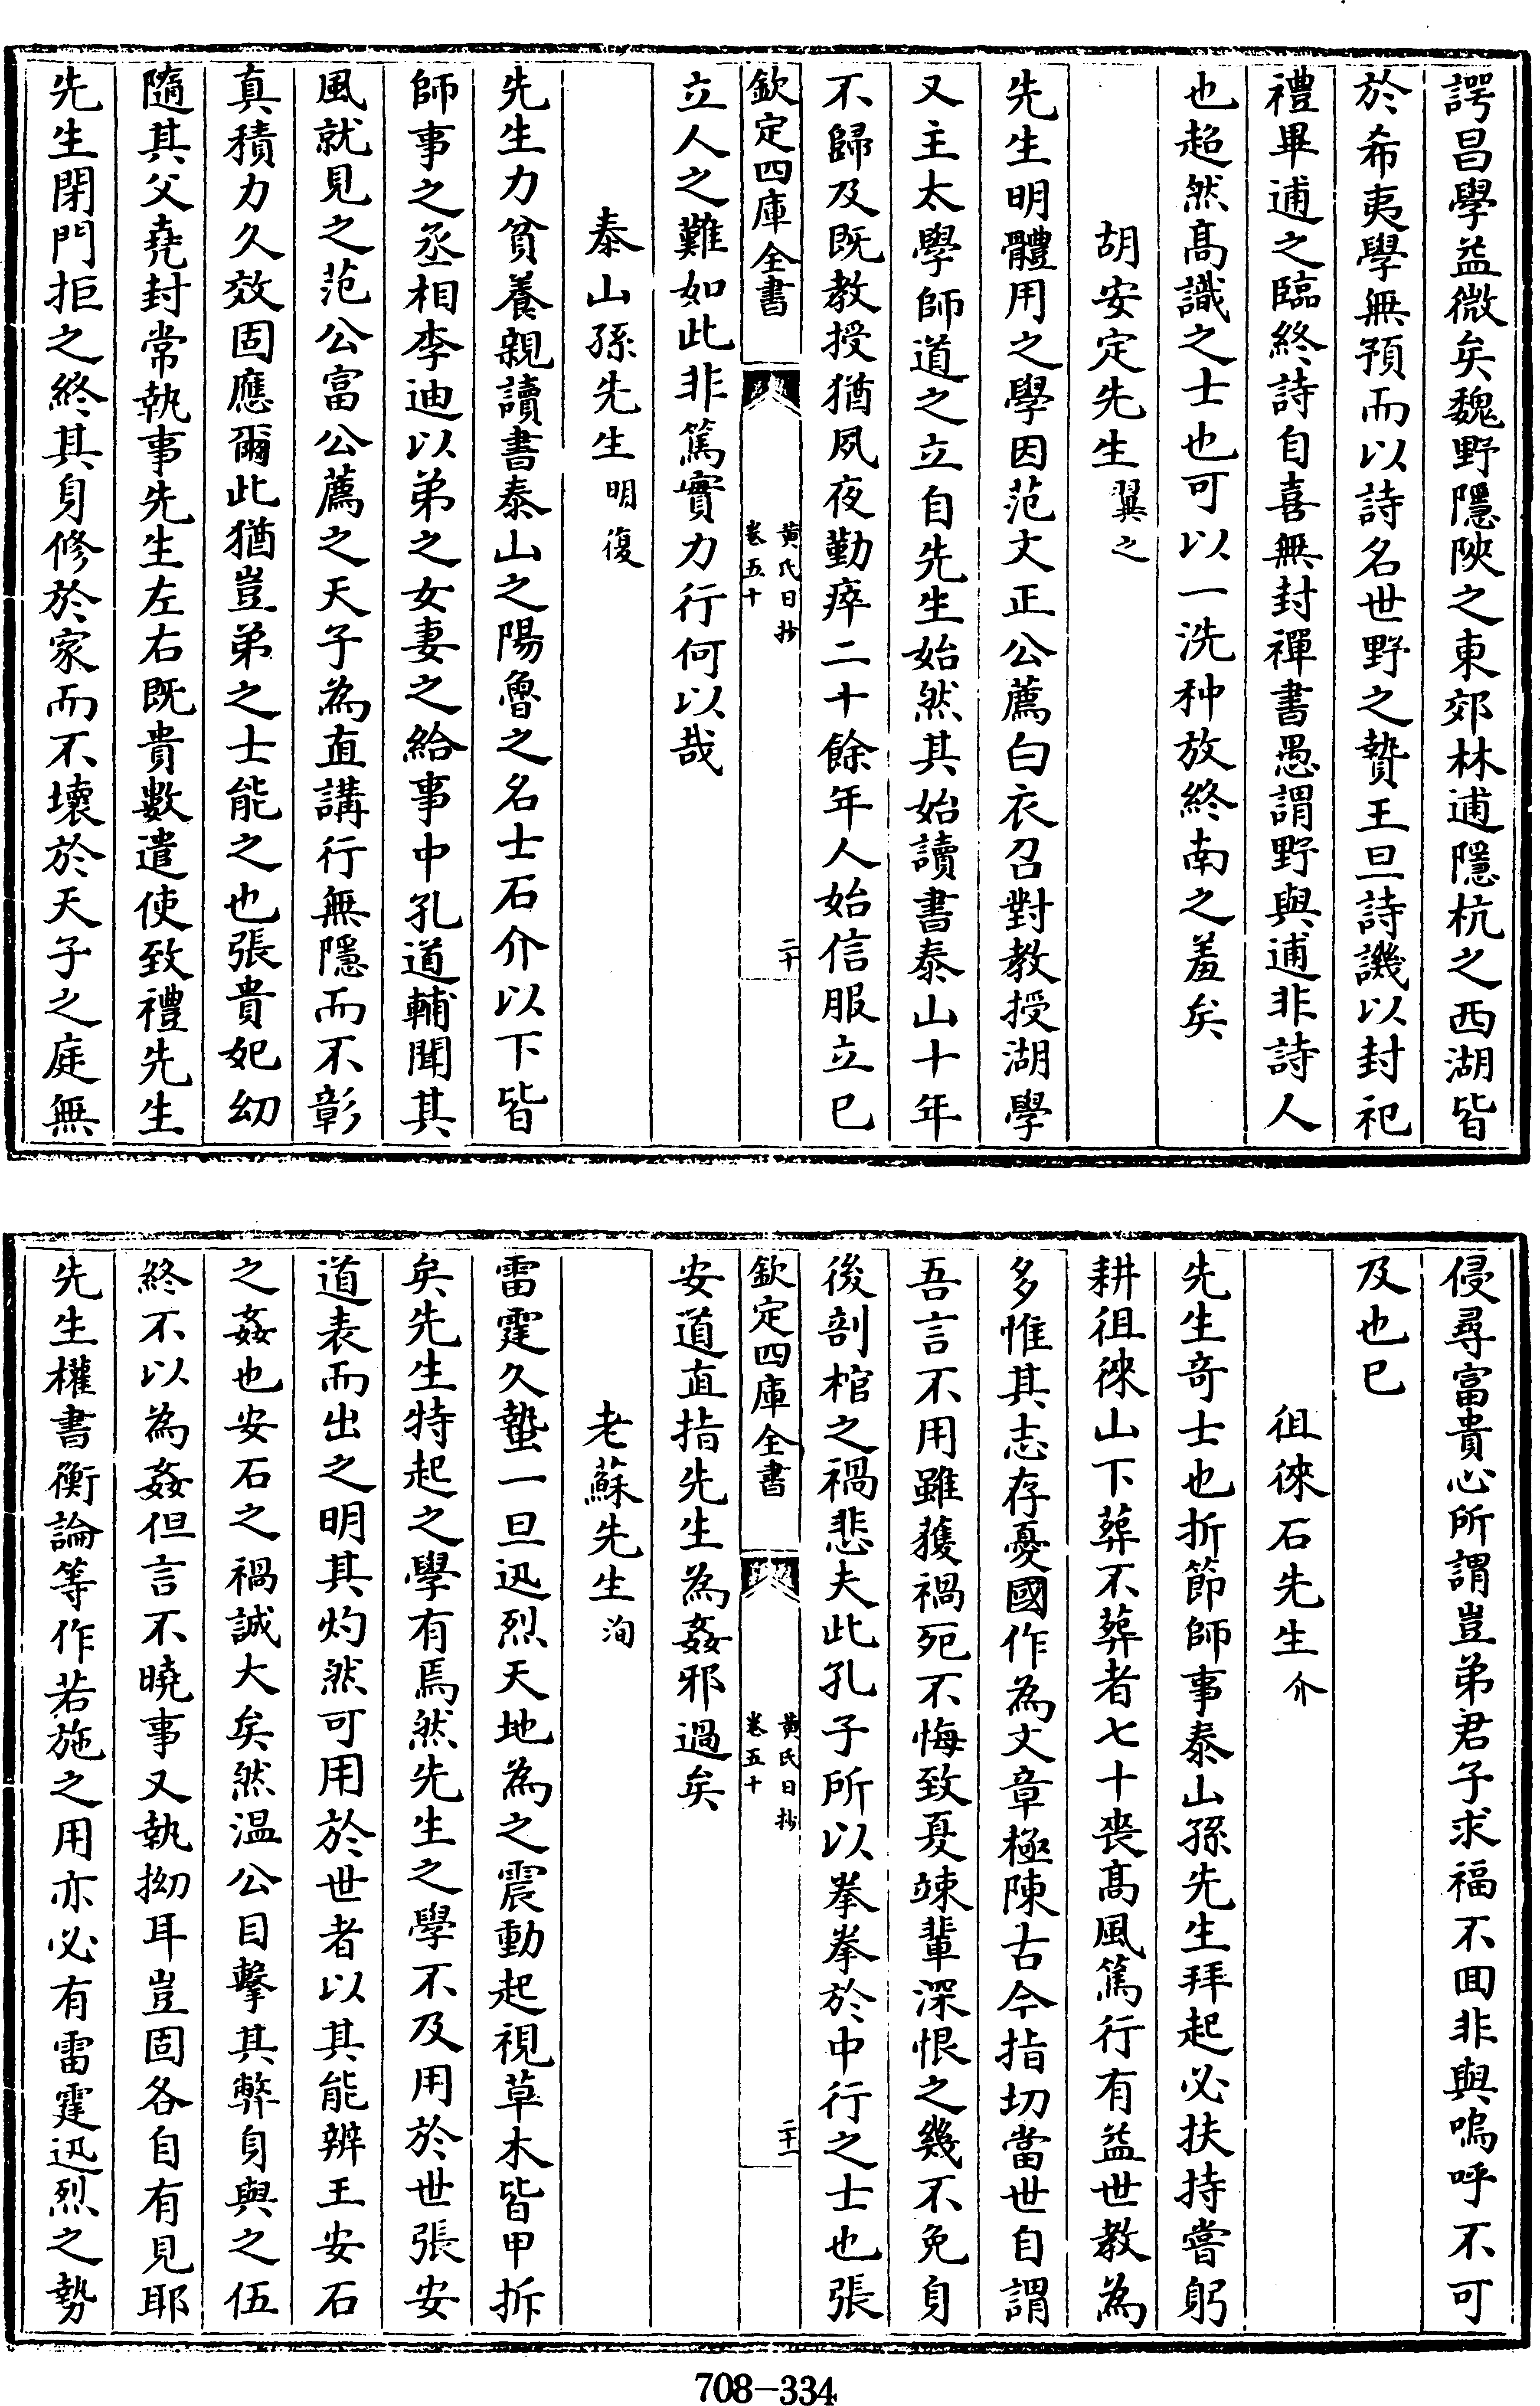 諤昌學益微矣魏野隱陜之東郊林逋隱杭之西湖皆
於希夷學無預而以詩名世野之贄王旦詩譏以封祀
禮畢逋之臨終詩自喜無封禪書愚謂野與逋非詩人
也超然髙識之士也可以一洗种放終南之羞矣
胡安定先生翼之
先生明體用之學因范文正公薦白衣召對教授湖學
又主太學師道之立自先生始然其始讀書泰山十年
不歸及既教授猶夙夜勤瘁二十餘年人始信服立已
欽定四庫全書
黄氏日抄
卷五十
二十
立人之難如此非篤實力行何以哉
泰山孫先生明復
先生力貧養親讀書泰山之陽魯之名士石介以下皆
師事之丞相李迪以弟之女妻之給事中孔道輔聞其
風就見之范公富公薦之天子為直講行無隱而不彰
真積力久效固應爾此猶豈弟之士能之也張貴妃幼
隨其父堯封常執事先生左右既貴數遣使致禮先生
先生閉門拒之終其身修於家而不壞於天子之庭無
侵尋富貴心所謂豈弟君子求福不回非與嗚呼不可
及也已
徂徠石先生介
先生竒士也折節師事泰山孫先生拜起必扶持嘗躬
耕徂徠山下葬不葬者七十喪髙風篤行有益世教為
多惟其志存憂國作為文章極陳古今指切當世自謂
吾言不用雖獲禍死不悔致夏竦輩深恨之幾不免身
後剖棺之禍悲夫此孔子所以拳拳於中行之士也張
欽定四庫全書
黄氏日抄
卷五十
二十一
安道直指先生為姦邪過矣
老蘇先生洵
雷霆久蟄一旦迅烈天地為之震動起視草木皆甲拆
矣先生特起之學有焉然先生之學不及用於世張安
道表而出之明其灼然可用於世者以其能辨王安石
之姦也安石之禍誠大矣然温公目擊其弊身與之伍
終不以為姦但言不曉事又執拗耳豈固各自有見耶
先生權書衡論等作若施之用亦必有雷霆迅烈之勢
708-334